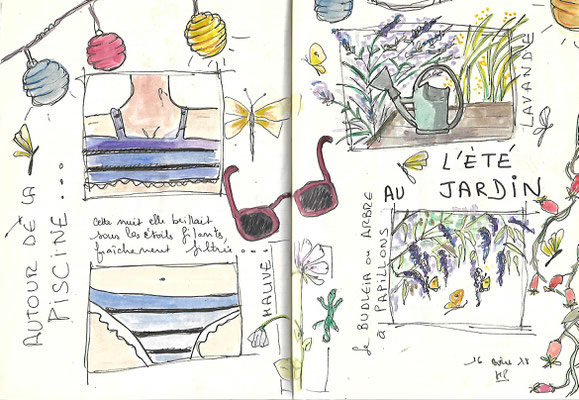 AUTOUR DE LA
PISCINE...
Cette nuit elle brillait
sous les étoiles filantes
fraîchement filtrée...
MAUVE
LAVANDE
L'ÉTÉ
AU JARDIN
le BUDLEIA ou ARBRE
à PAPILLONS
16
18